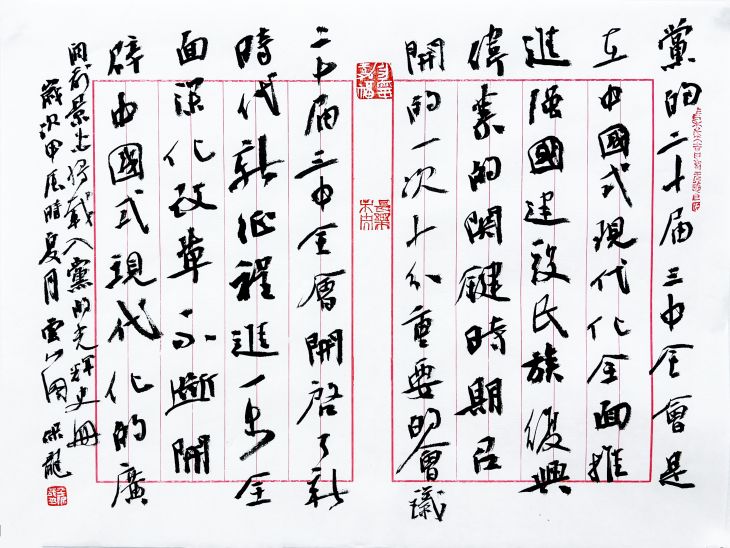 黨的二十届三中全會是
在中國式現代化全面推
進强國建設民族復興
偉業的関鍵時期召
開的一次十分重要的會議
二十届三中全會開啓了新
時代新征程進一步全
面深化改革不斷開
辟中國式現代化的廣
闊前景也將載入黨的光輝史冊
歲次甲辰時夏月雲山閣保龍
長樂未央